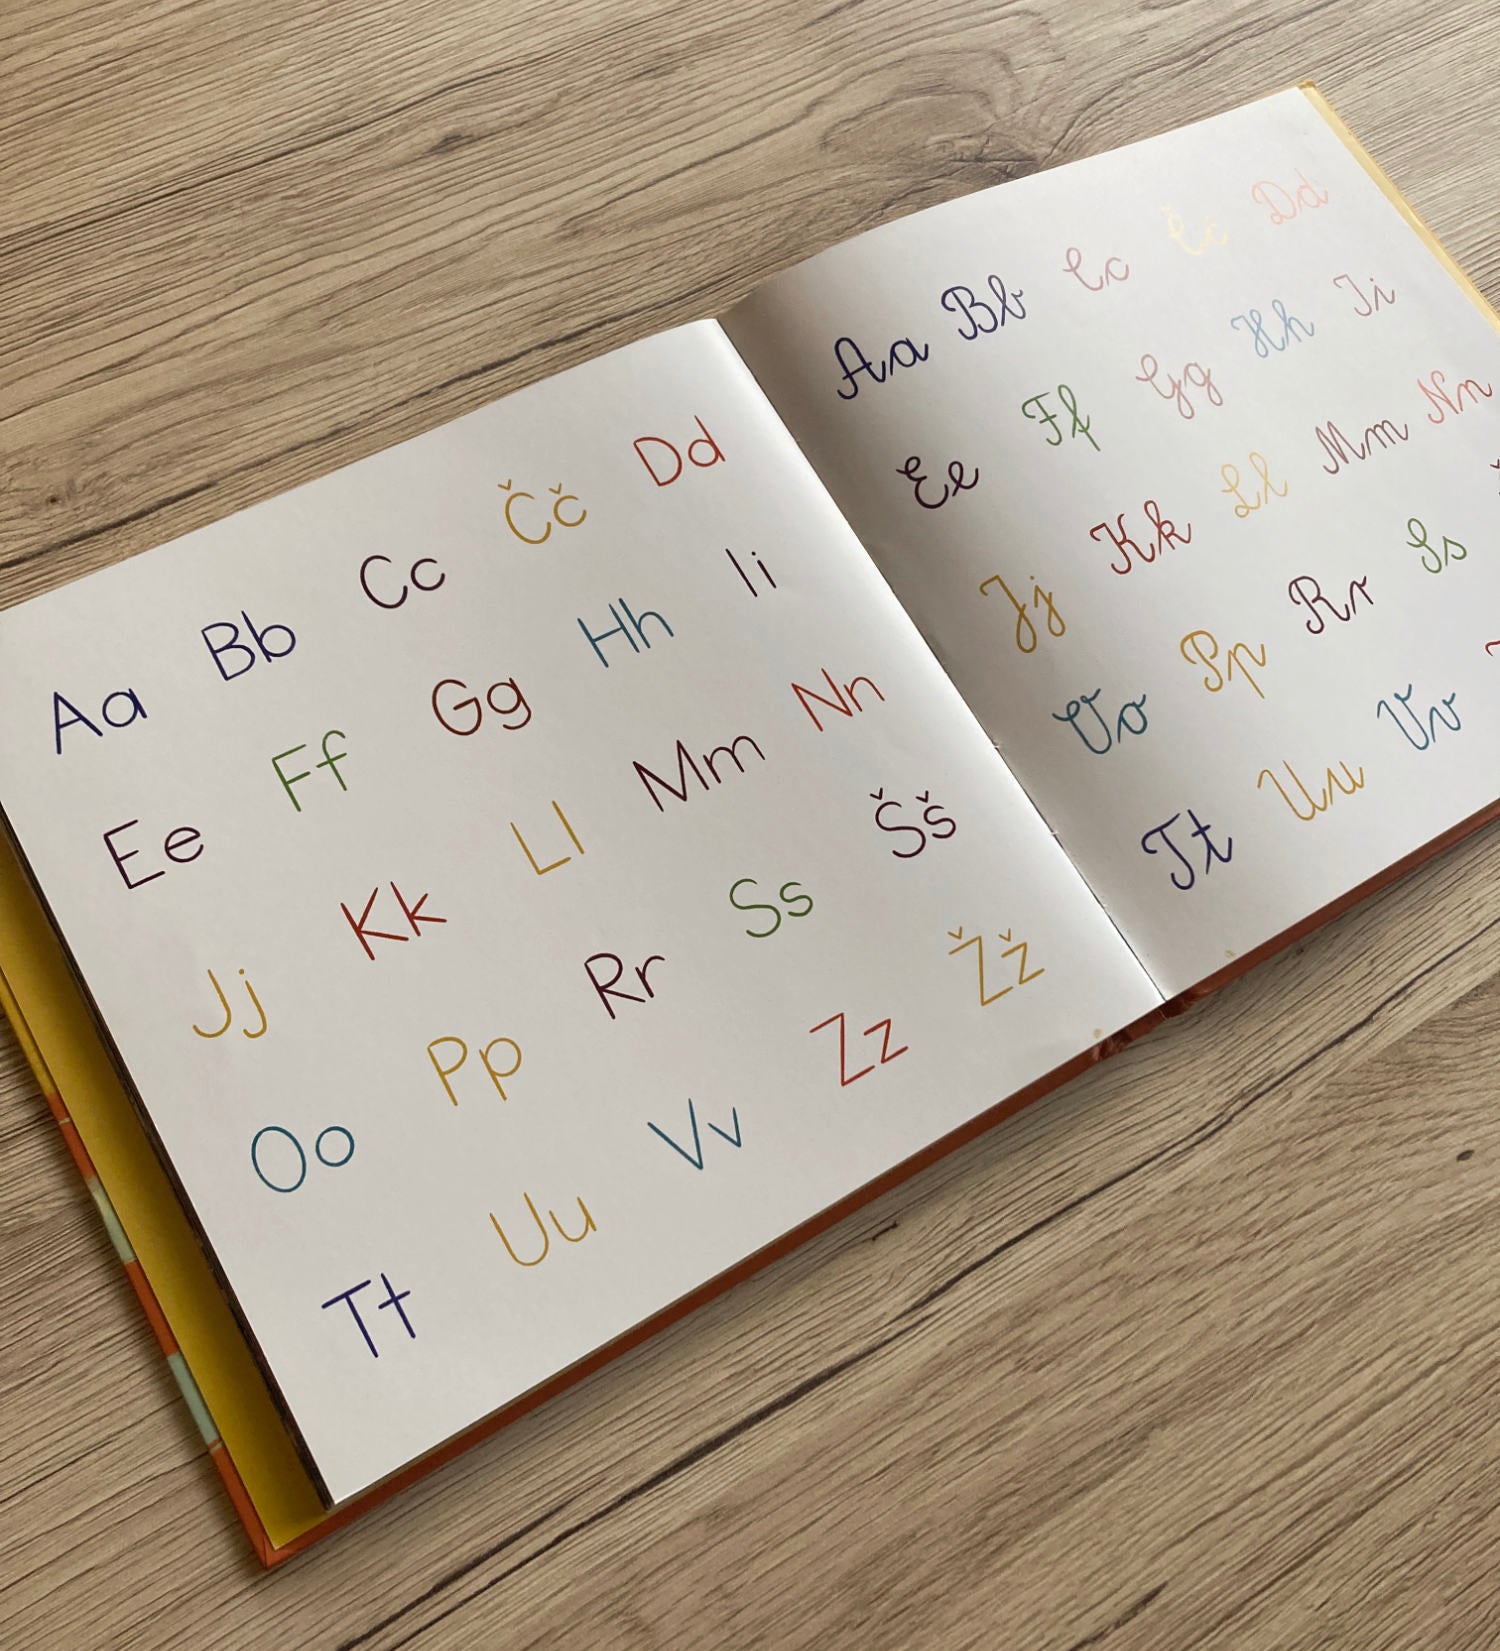 Aa Bb Cc Čč Dd
Ee Ff Gg Hh Ii
Jj Kk Ll Mm Nn
Oo Pp Rr Ss Šš
Tt Uu Vv Zz Žž
Aa Bb Cc Čč Dd
Ee Ff Gg Hh Ii
Jj Kk Ll Mm Nn
Oo Pp Rr Ss
Tt Uu Vv